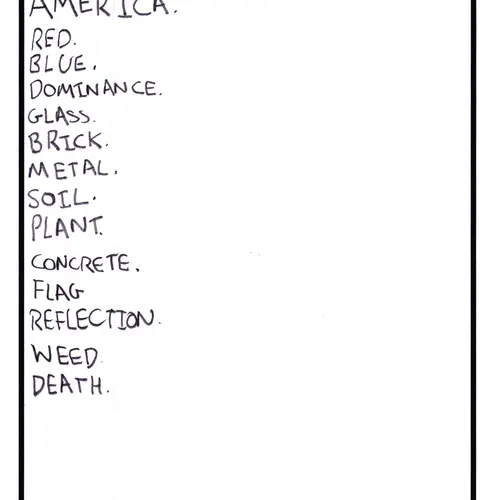 AMERICA.
RED.
BLUE.
DOMINANCE.
GLASS.
BRICK.
METAL.
SOIL.
PLANT.
CONCRETE.
FLAG
REFLECTION.
WEED.
DEATH.